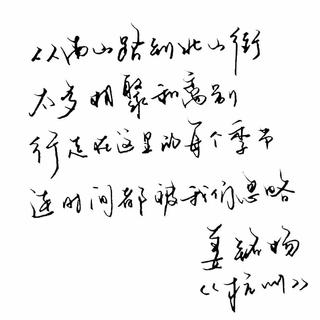 从南山路到北山街
太多相聚和离别
行走在这里的每个季节
连时间都被我们忽略
姜铭扬
《杭州》